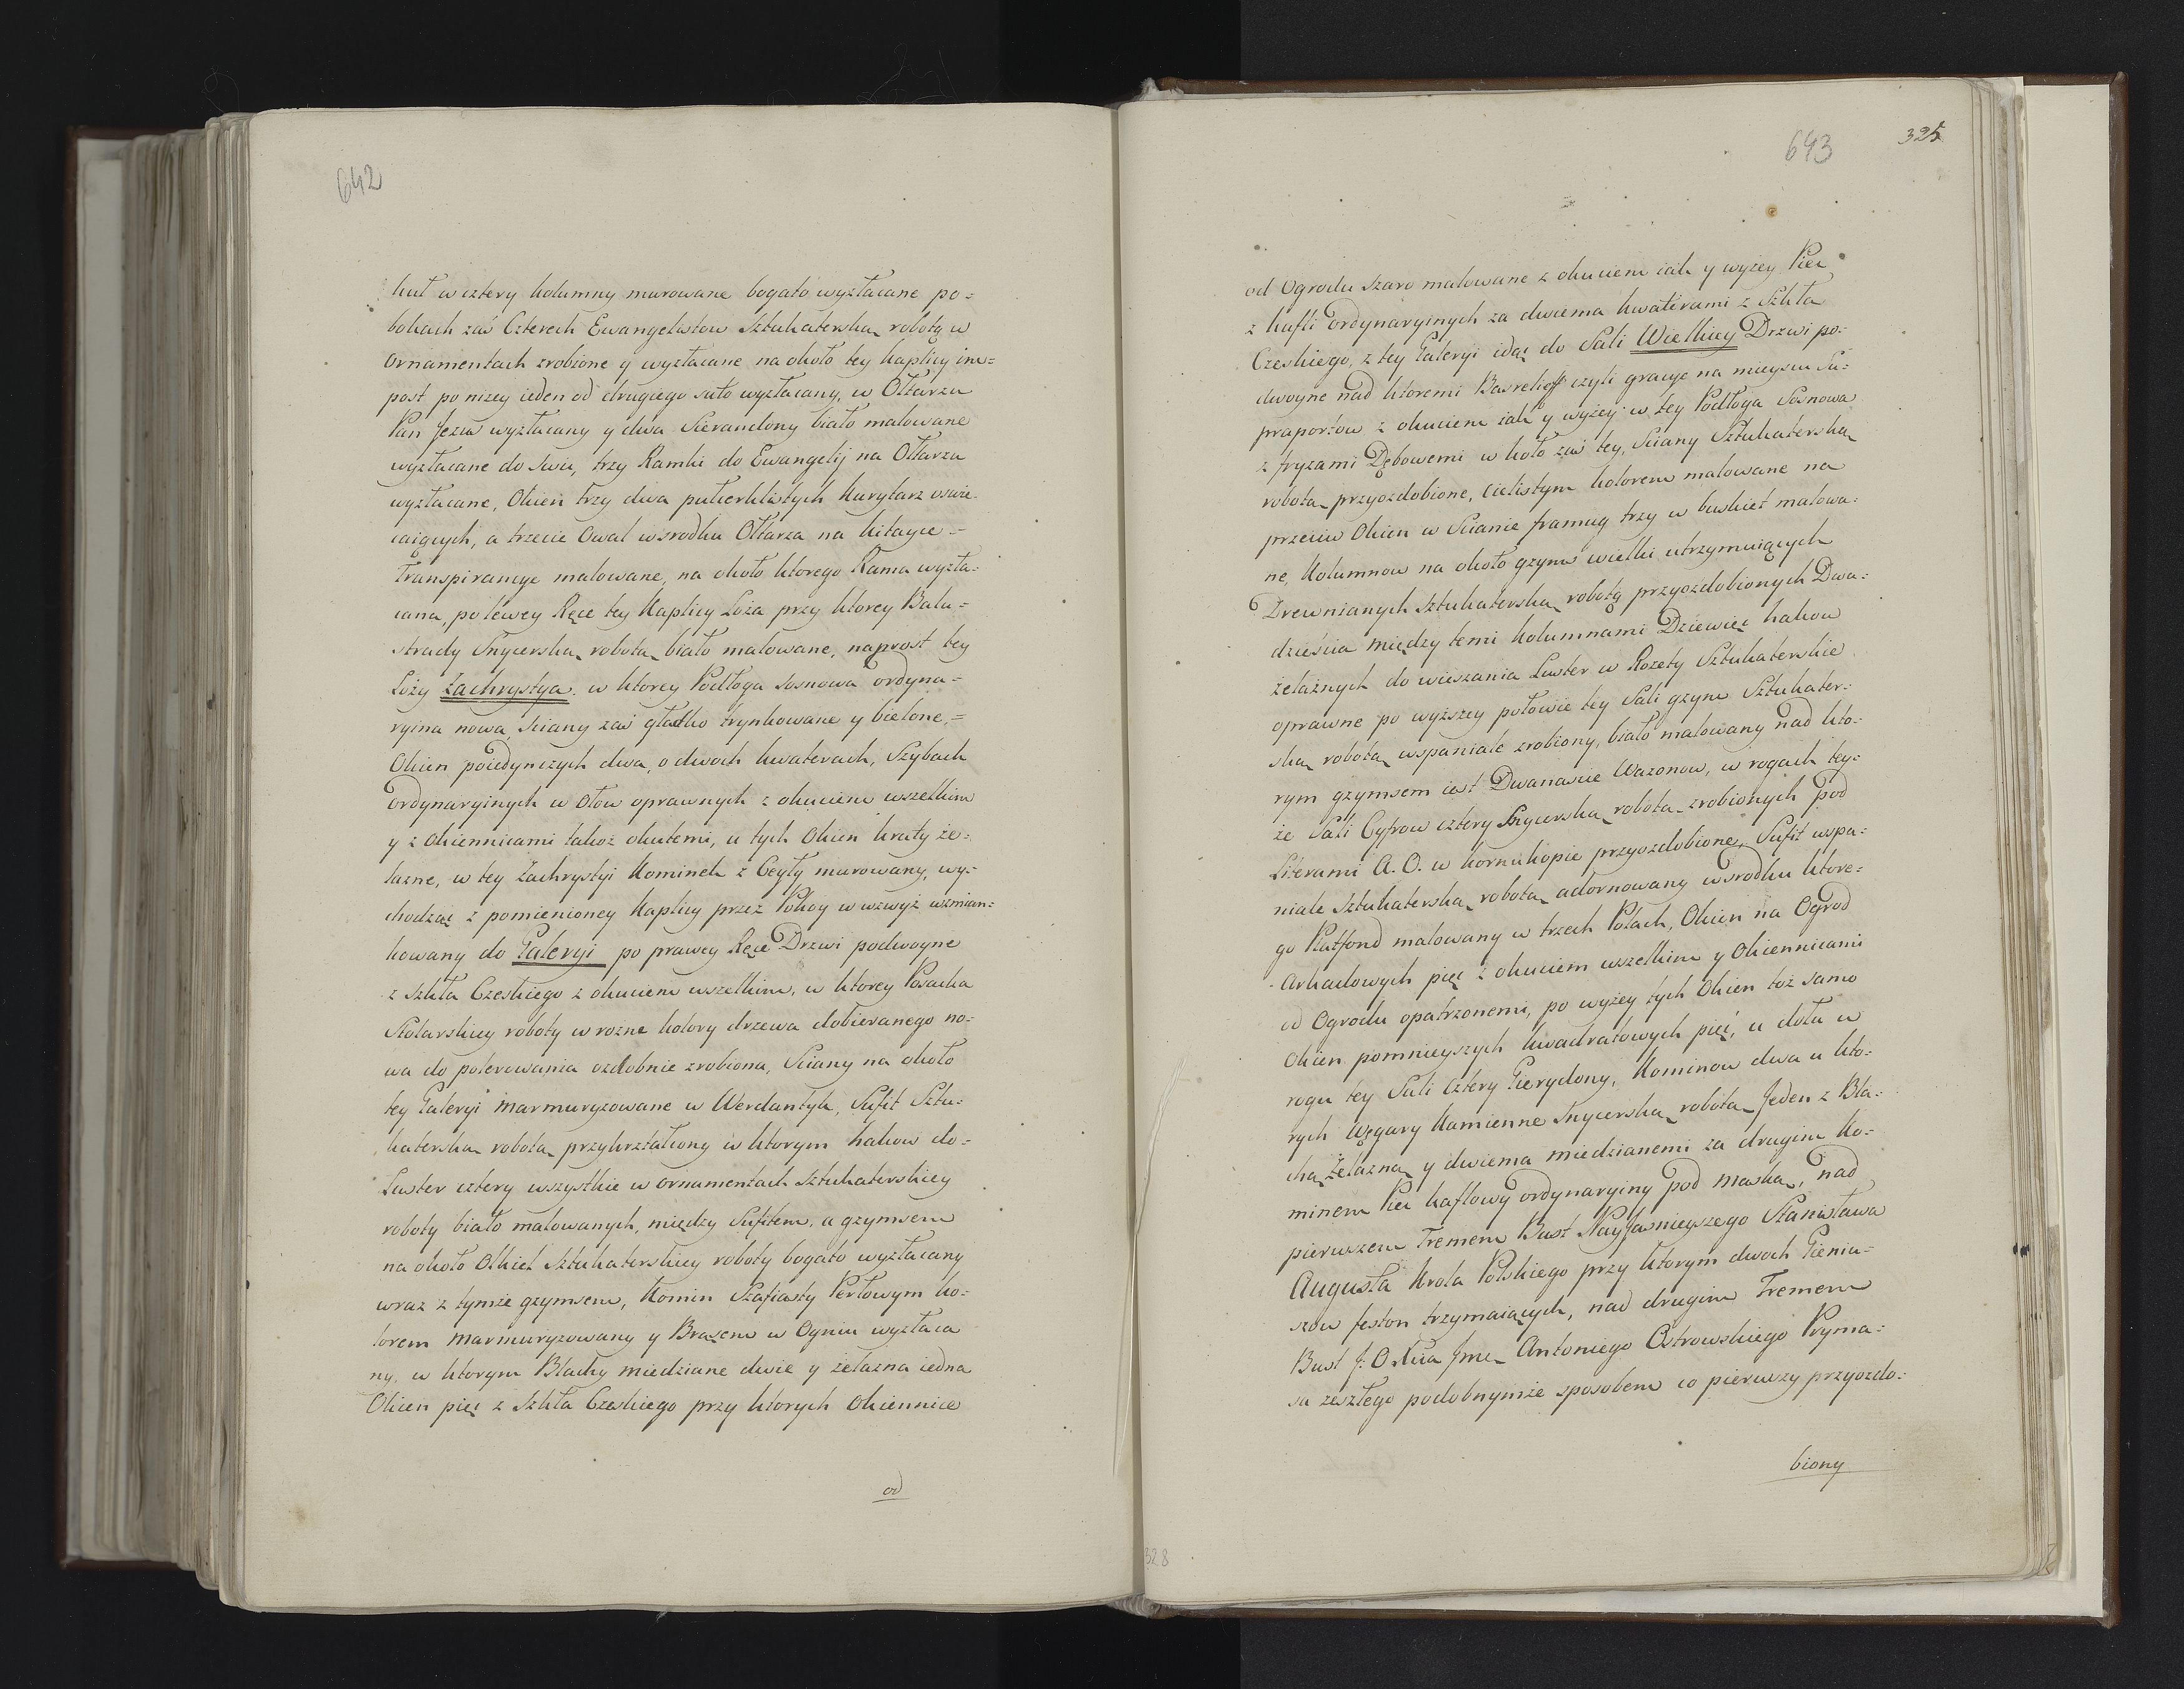 642
kut w cztery kolumny murowane bogato wyzłacane po=
bokach zaś Czterech Ewangelistow Sztukaterską robotą w
ornamentach zrobione y wyzłacane na około tey kaplicy im=
post po niżey ieden od drugiego suto wyzłacany, w Ołtarzu
Pan Jezus wyzłacany y dwa Gierandony biało malowane
wyzłacane do swiec, trzy Ramki do Ewangelij na Ołtarzu
wyzłacane, Okien trzy dwa pułcerklistych kurytarz oswie=
caiących, a trzecie Owal wsrodku Ołtarza na kitayce=
Transpirancye malowane, na około ktorego Rama wyzła=
cana, po lewey Ręce tey Kaplicy Loża przy ktorey Balu=
strady Snycerską robotą biało malowane, naprost tey
Loży Zachrystya. w ktorey Podłoga sosnowa ordyna=
ryina nowa, sciany zaś gładko trynkowane y bielone,=
Okien poiedynczych dwa, o dwoch kwaterach, Szybach
Ordynaryinych w Ołow oprawnych z okuciem wszelkim
y z okiennicami takoż okutemi, u tych Okien kraty że=
lazne, w tey Zachrystyi Kominek z Cegły murowany, wy=
chodząc z pomienioney Kaplicy przez Pokoy w wzwyż wzmian=
kowany do Galeryi po prawey Ręce Drzwi podwoyne
z szkła Czeskiego z okuciem wszelkim, w ktorey Posacka
Stolarskiey roboty w rożne kolory drzewa dobieranego no=
wa do polerowania ozdobnie zrobiona, Sciany na około
tey Galeryi marmuryzowane w Werdantyk, Sufit Sztu=
katerską robotą przykształcony w ktorym hakow do=
Luster cztery wszystkie w ornamentach Sztukaterskiey
roboty biało malowanych, między Sufitem, a gzymsem
na około Olkiel Sztukaterskiey roboty bogato wyzłacany
wraz z tymże gzymsem, Komin Szafiasty Perłowym ko=
lorem marmuryzowany y Brązem w Ogniu wyzłaca
ny, w ktorym Blachy miedziane dwie y żelazna iedna
Okien pięć z Szkła Czeskiego przy ktorych Okiennice
od
643
325
od Ogrodu szaro malowane z okuciem iak y wyżey Piec
z kafli ordynaryinych za dwiema kwaterami z Szkła
Czeskiego, z tey Galeryi idąc do Sali Wielkiey Drzwi po=
dwoyne nad ktoremi Basrelieff czyli gracye na mieyscu Su=
praportow z okuciem iak y wyżey w tey Podłoga Sosnowa
z fryzami Dębowemi w koło zaś tey, Sciany Sztukaterską
robotą przyozdobione, cielistym kolorem malowane na
przeciw Okien w Scianie framug trzy w buskiet malowa=
ne, Kolumnow na około gzyms wielki utrzymuiących
Drewnianych Sztukaterską robotą przyozdobionych Dwa=
dzieścia między temi kolumnami Dziewięć hakow
żelaznych do wieszania Luster w Rozety Sztukaterskie
oprawne po wyższey połowie tey Sali gzyms Sztukater=
ską robotą wspaniale zrobiony, biało malowany nad kto=
rym gzymsem iest Dwanascie Wazonow, w rogach tey=
że Sali Cyfrow cztery Snycerską robotą zrobionych pod
Literami A. O. w kornukopie przyozdobione, Sufit wspa=
niale Sztukaterską robotą adornowany wsrodku ktore=
go Platfond malowany w trzech Polach, Okien na Ogrod
Arkadowych pięć z okuciem wszelkim y Okiennicami
od Ogrodu opatrzonemi, po wyżey tych Okien toż samo
Okien pomnieyszych kwadratowych pięć, u dołu w
rogu tey Sali cztery Gierydony, Kominow dwa u kto=
rych Węgary Kamienne Snycerską robotą Jeden z Bla=
chą Żelazną y dwiema miedzianemi za drugim Ko=
minem Piec kaflowy ordynaryiny pod maską, nad
pierwszem Tremem Bust Nayjasnieyszego Stanisława
Augusta Krola Polskiego przy ktorym dwoch Gieniu=
szow feston trzymaiących, nad drugim Tremem
Bust J: O Xcia Jmci Antoniego Ostrowskiego Pryma=
sa zeszłego podobnymże sposobem co pierwszy przyozdo=
biony
328